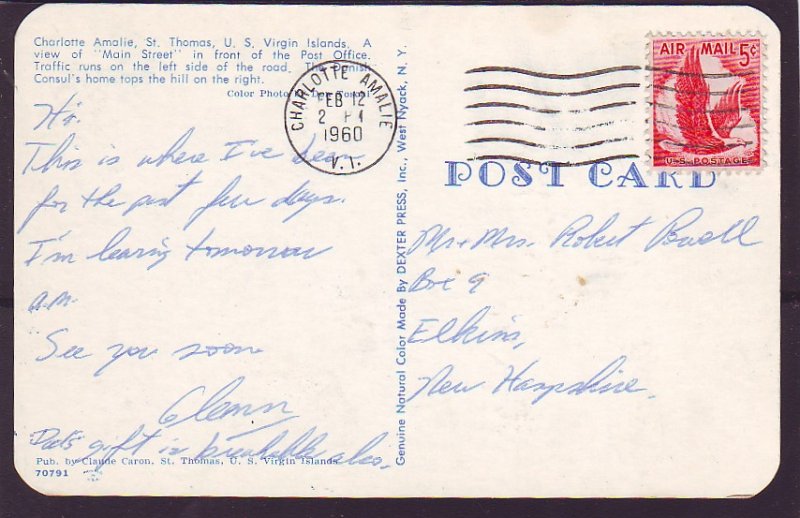 Charlotte Amalie, St. Thomas, U. S. Virgin Islands. A
view of "Main Street" in front of the Post Office.
Traffic runs on the left side of the road. The Danish
Consul's home tops the hill on the right.
Color Photo
CHARLOTTE AMALIE
FEB 12
2 PM
1960
V.I.
AIR MAIL 5¢
U.S. POSTAGE
POST CARD
Hi.
This is where I've been
for the past few days.
I'm leaving tomorrow
a.m.
See you soon
Glenn
Dads gift is breakable also.
Pub. by Claude Caron, St. Thomas, U. S. Virgin Islands
70791
Genuine Natural Color Made By DEXTER PRESS, Inc., West Nyack, N. Y.
Mr + Mrs. Robert Powell
Box 9
Elkins,
New Hampshire.